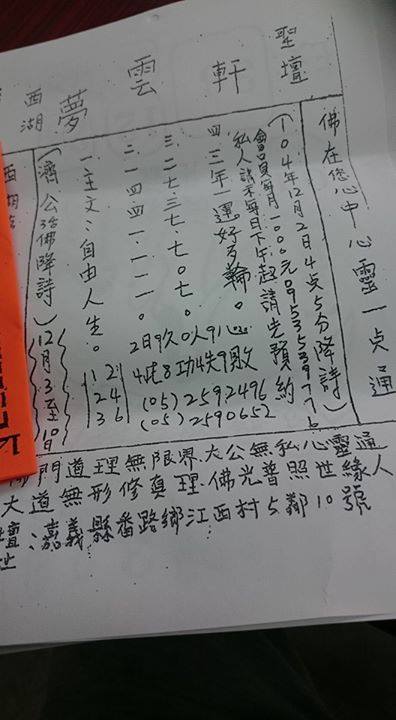 西湖 夢雲軒 聖壇
佛在您心中心靈一点通
(104年12月2日4点5分降詩)
會員每月1000元
私人請示每日下午起請先預約
四三年一運。好歹輪。
三、二七三七、七0七。
二、一四四一、一一一。
一、主文:自由人生。
2日9欠0人9心
4屯8功4失9敗
(05)2592496
(05)2590652
12
24
36
(濟公活佛降詩)12月3至10日
門道理無限界大公無私心靈通
大道無形修真理.佛光普照世緣人
壇址:嘉義縣番路鄉江西村5鄰10號